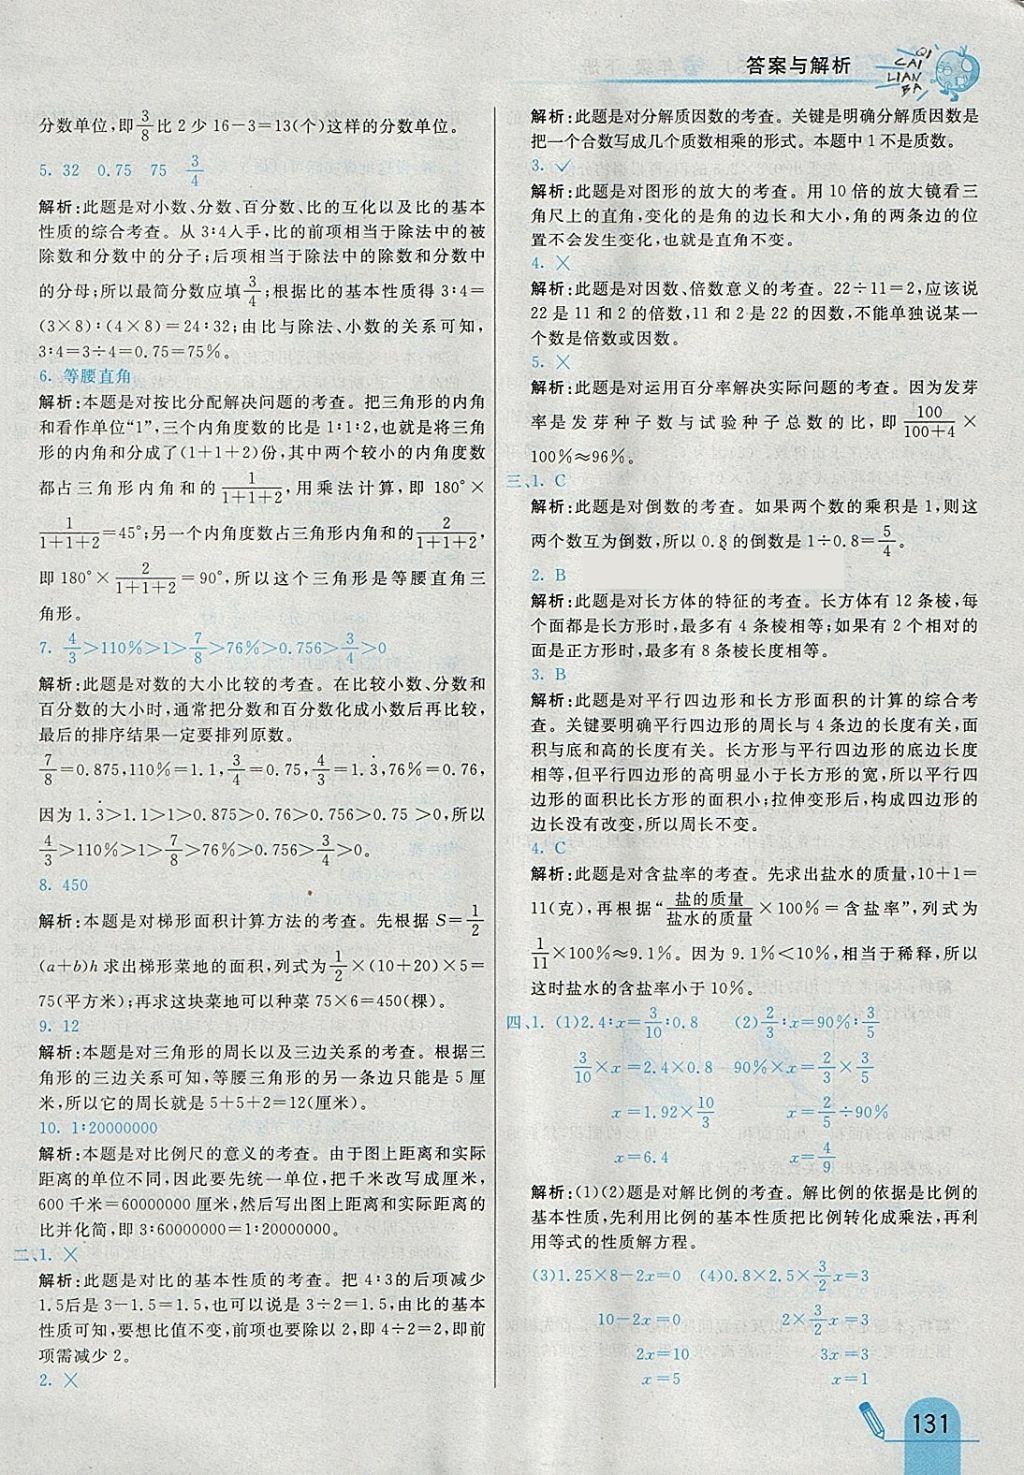 答案与解析
QI
CAI
LIAN
BA
分数单位,即3/8比2少16-3=13(个)这样的分数单位。
5. 32 0.75 75 3/4
解析:此题是对小数、分数、百分数、比的互化以及比的基本
性质的综合考查。从3∶4入手,比的前项相当于除法中的被
除数和分数中的分子;后项相当于除法中的除数和分数中
的分母;所以最简分数应填3/4;根据比的基本性质得3∶4=
(3×8)∶(4×8)=24∶32;由比与除法、小数的关系可知,
3∶4=3÷4=0.75=75%。
6. 等腰直角
解析:本题是对按比分配解决问题的考查。把三角形的内角
和看作单位“1”,三个内角度数的比是1∶1∶2,也就是将三角
形的内角和分成了(1+1+2)份,其中两个较小的内角度数
都占三角形内角和的1/(1+1+2),用乘法计算,即180°×
1/(1+1+2)=45°;另一个内角度数占三角形内角和的2/(1+1+2),
即180°×2/(1+1+2)=90°,所以这个三角形是等腰直角三
角形。
7. 4/3>110%>1>7/8>76%>0.756>3/4>0
解析:此题是对数的大小比较的考查。在比较小数、分数和
百分数的大小时,通常把分数和百分数化成小数后再比较,
最后的排序结果一定要排列原数。
7/8=0.875,110%=1.1,3/4=0.75,4/3=1.3̇,76%=0.76,
因为1.3̇>1.1>1>0.875>0.76>0.756>0.75>0,所以
4/3>110%>1>7/8>76%>0.756>3/4>0。
8. 450
解析:本题是对梯形面积计算方法的考查。先根据S=1/2
(a+b)h求出梯形菜地的面积,列式为1/2×(10+20)×5=
75(平方米);再求这块菜地可以种菜75×6=450(棵)。
9. 12
解析:本题是对三角形的周长以及三边关系的考查。根据三
角形的三边关系可知,等腰三角形的另一条边只能是5厘
米,所以它的周长就是5+5+2=12(厘米)。
10. 1∶20000000
解析:本题是对比例尺的意义的考查。由于图上距离和实际
距离的单位不同,因此要先统一单位,把千米改写成厘米,
600千米=60000000厘米,然后写出图上距离和实际距离的
比并化简,即3∶60000000=1∶20000000。
二、1. ×
解析:此题是对比的基本性质的考查。把4∶3的后项减少
1.5后是3-1.5=1.5,也可以说是3÷2=1.5,由比的基本
性质可知,要想比值不变,前项也要除以2,即4÷2=2,即前
项需减少2。
2. ×
解析:此题是对分解质因数的考查。关键是明确分解质因数是
把一个合数写成几个质数相乘的形式。本题中1不是质数。
3. ✓
解析:此题是对图形的放大的考查。用10倍的放大镜看三
角尺上的直角,变化的是角的边长和大小,角的两条边的位
置不会发生变化,也就是直角不变。
4. ×
解析:此题是对因数、倍数意义的考查。22÷11=2,应该说
22是11和2的倍数,11和2是22的因数,不能单独说某一
个数是倍数或因数。
5. ×
解析:此题是对运用百分率解决实际问题的考查。因为发芽
率是发芽种子数与试验种子总数的比,即100/(100+4)×
100%≈96%。
三、1. C
解析:此题是对倒数的考查。如果两个数的乘积是1,则这
两个数互为倒数,所以0.8的倒数是1÷0.8=5/4。
2. B
解析:此题是对长方体的特征的考查。长方体有12条棱,每
个面都是长方形时,最多有4条棱相等;如果有2个相对的
面是正方形时,最多有8条棱长度相等。
3. B
解析:此题是对平行四边形和长方形面积的计算的综合考
查。关键要明确平行四边形的周长与4条边的长度有关,面
积与底和高的长度有关。长方形与平行四边形的底边长度
相等,但平行四边形的高明显小于长方形的宽,所以平行四
边形的面积比长方形的面积小;拉伸变形后,构成四边形的
边长没有改变,所以周长不变。
4. C
解析:此题是对含盐率的考查。先求出盐水的质量,10+1=
11(克),再根据“盐的质量/盐水的质量×100%=含盐率”,列式为
1/11×100%≈9.1%。因为9.1%<10%,相当于稀释,所以
这时盐水的含盐率小于10%。
四、1. (1)2.4∶x=3/10∶0.8 (2)2/3∶x=90%∶3/5
3/10×x=2.4×0.8 90%×x=2/3×3/5
x=1.92×10/3 x=2/5÷90%
x=6.4 x=4/9
解析:(1)(2)题是对解比例的考查。解比例的依据是比例的
基本性质,先利用比例的基本性质把比例转化成乘法,再利
用等式的性质解方程。
(3)1.25×8-2x=0 (4)0.8×2.5×3/2x=3
10-2x=0 2×3/2x=3
2x=10 3x=3
x=5 x=1
131